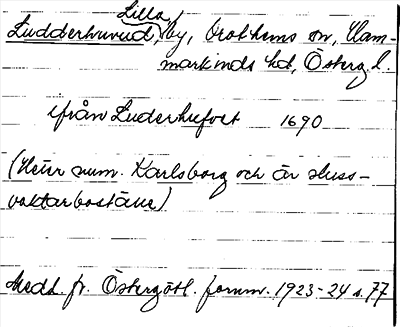 Lilla
Ludderhuvud, by, Drothems sn, Ham-
markinds hd, Österg. l.
ifrån Luderhufvet 1690
(Heter num. Karlsborg och är sluss-
vaktarbostäue)
Medd. fr. Östergötl. fornm. 1923-24 s. 77